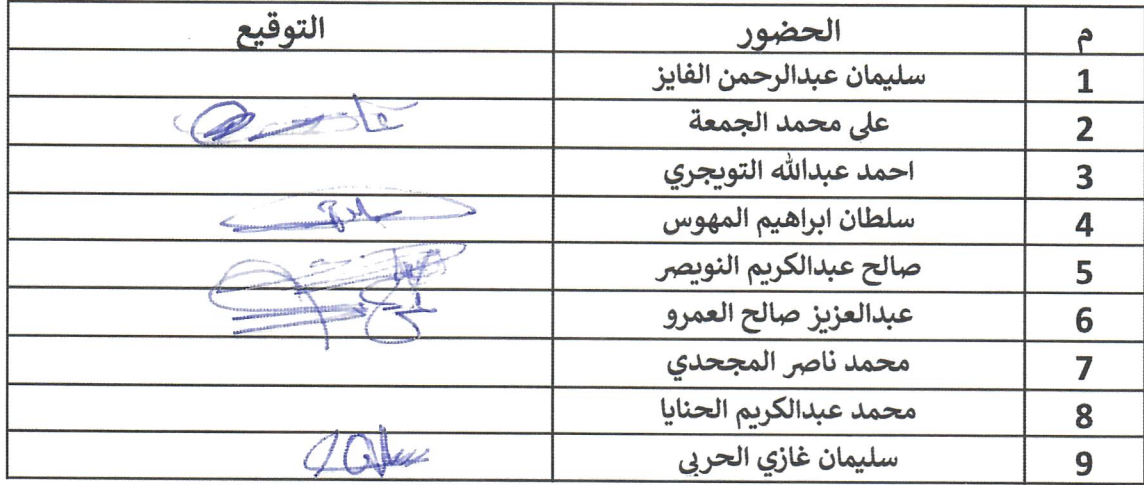 م الحضور التوقيع
1 سليمان عبدالرحمن الفايز
2 علي محمد الجمعة
3 احمد عبدالله التويجري
4 سلطان ابراهيم المهوس
5 صالح عبدالكريم النويصر
6 عبدالعزيز صالح العمرو
7 محمد ناصر المجحدي
8 محمد عبدالكريم الحنايا
9 سليمان غازي الحربي